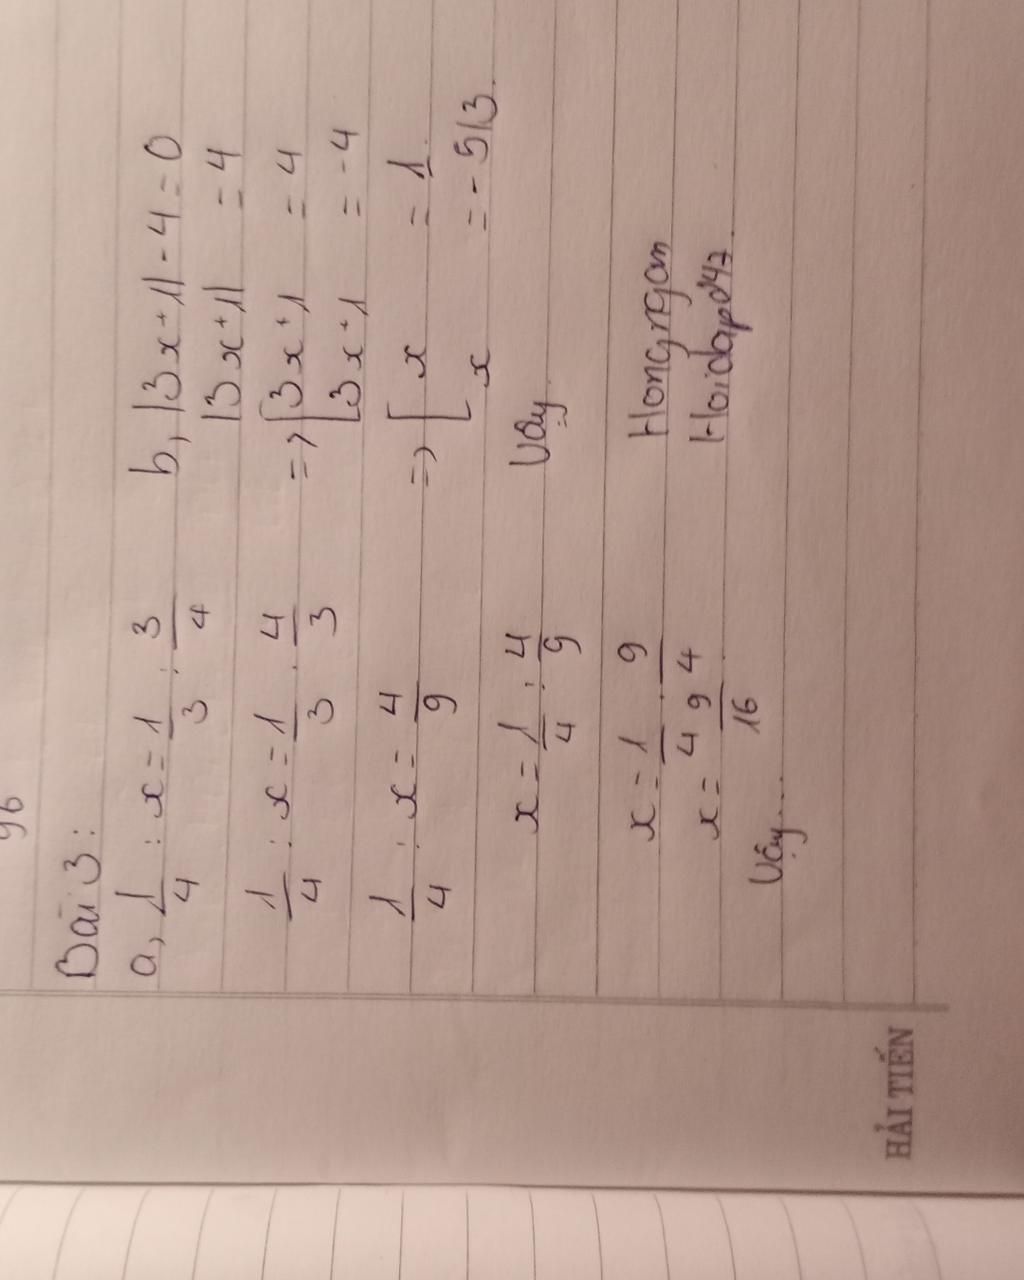 96
Bài 3:
a, 1/4 : x = 1/3 : 3/4
1/4 : x = 1/3 . 4/3
1/4 : x = 4/9
x = 1/4 : 4/9
x = 1/4 . 9/4
x = 9/16
Vậy...
b, |3x+1| - 4 = 0
|3x+1| = 4
=> [3x+1 = 4
[3x+1 = -4
=> [x = 1
[x = -5/3.
Vậy
Hongngan
Hoidap247.
HẢI TIẾN